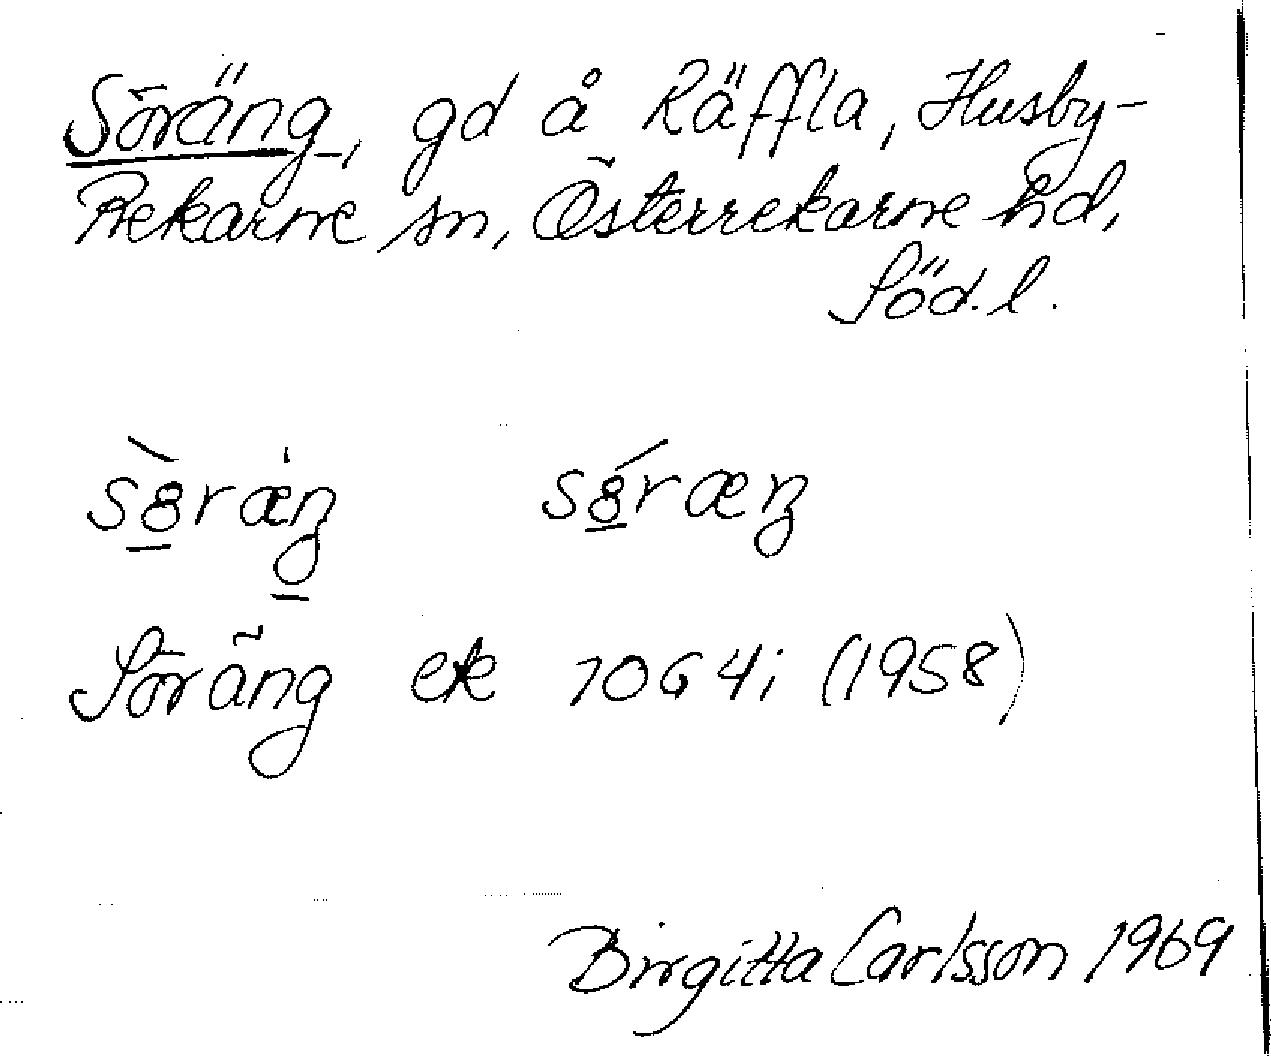 Söräng, gd å Räffla, Husby-
Rekarne sn, Österrekarne hd,
Söd. l.
Söräng ek 10G 4i (1958)
Birgitta Carlsson 1969